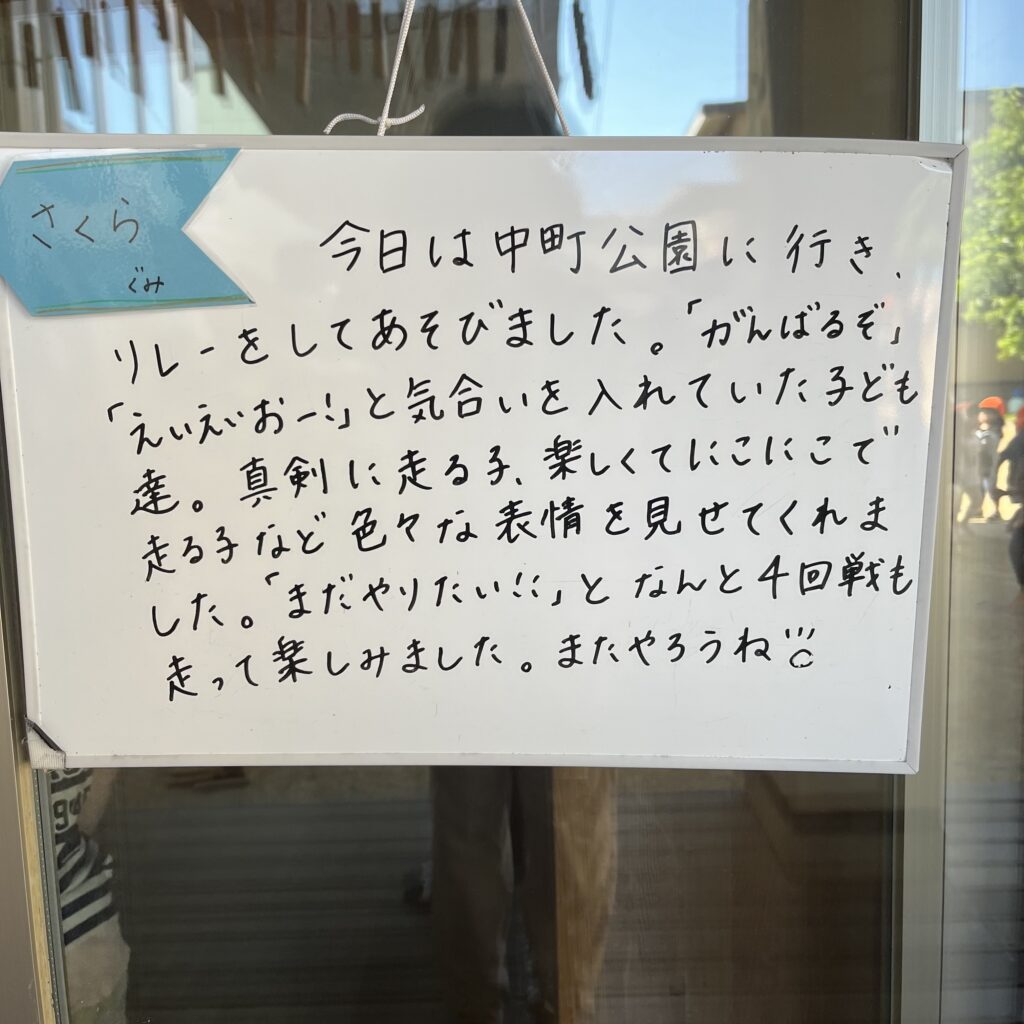 さくら
ぐみ
今日は中町公園に行き、
リレーをしてあそびました。「がんばるぞ」
「えいえいおー!」と気合いを入れていた子ども
達。真剣に走る子、楽しくてにこにこで
走る子など色々な表情を見せてくれま
した。「まだやりたい!!」となんと4回戦も
走って楽しみました。またやろうね